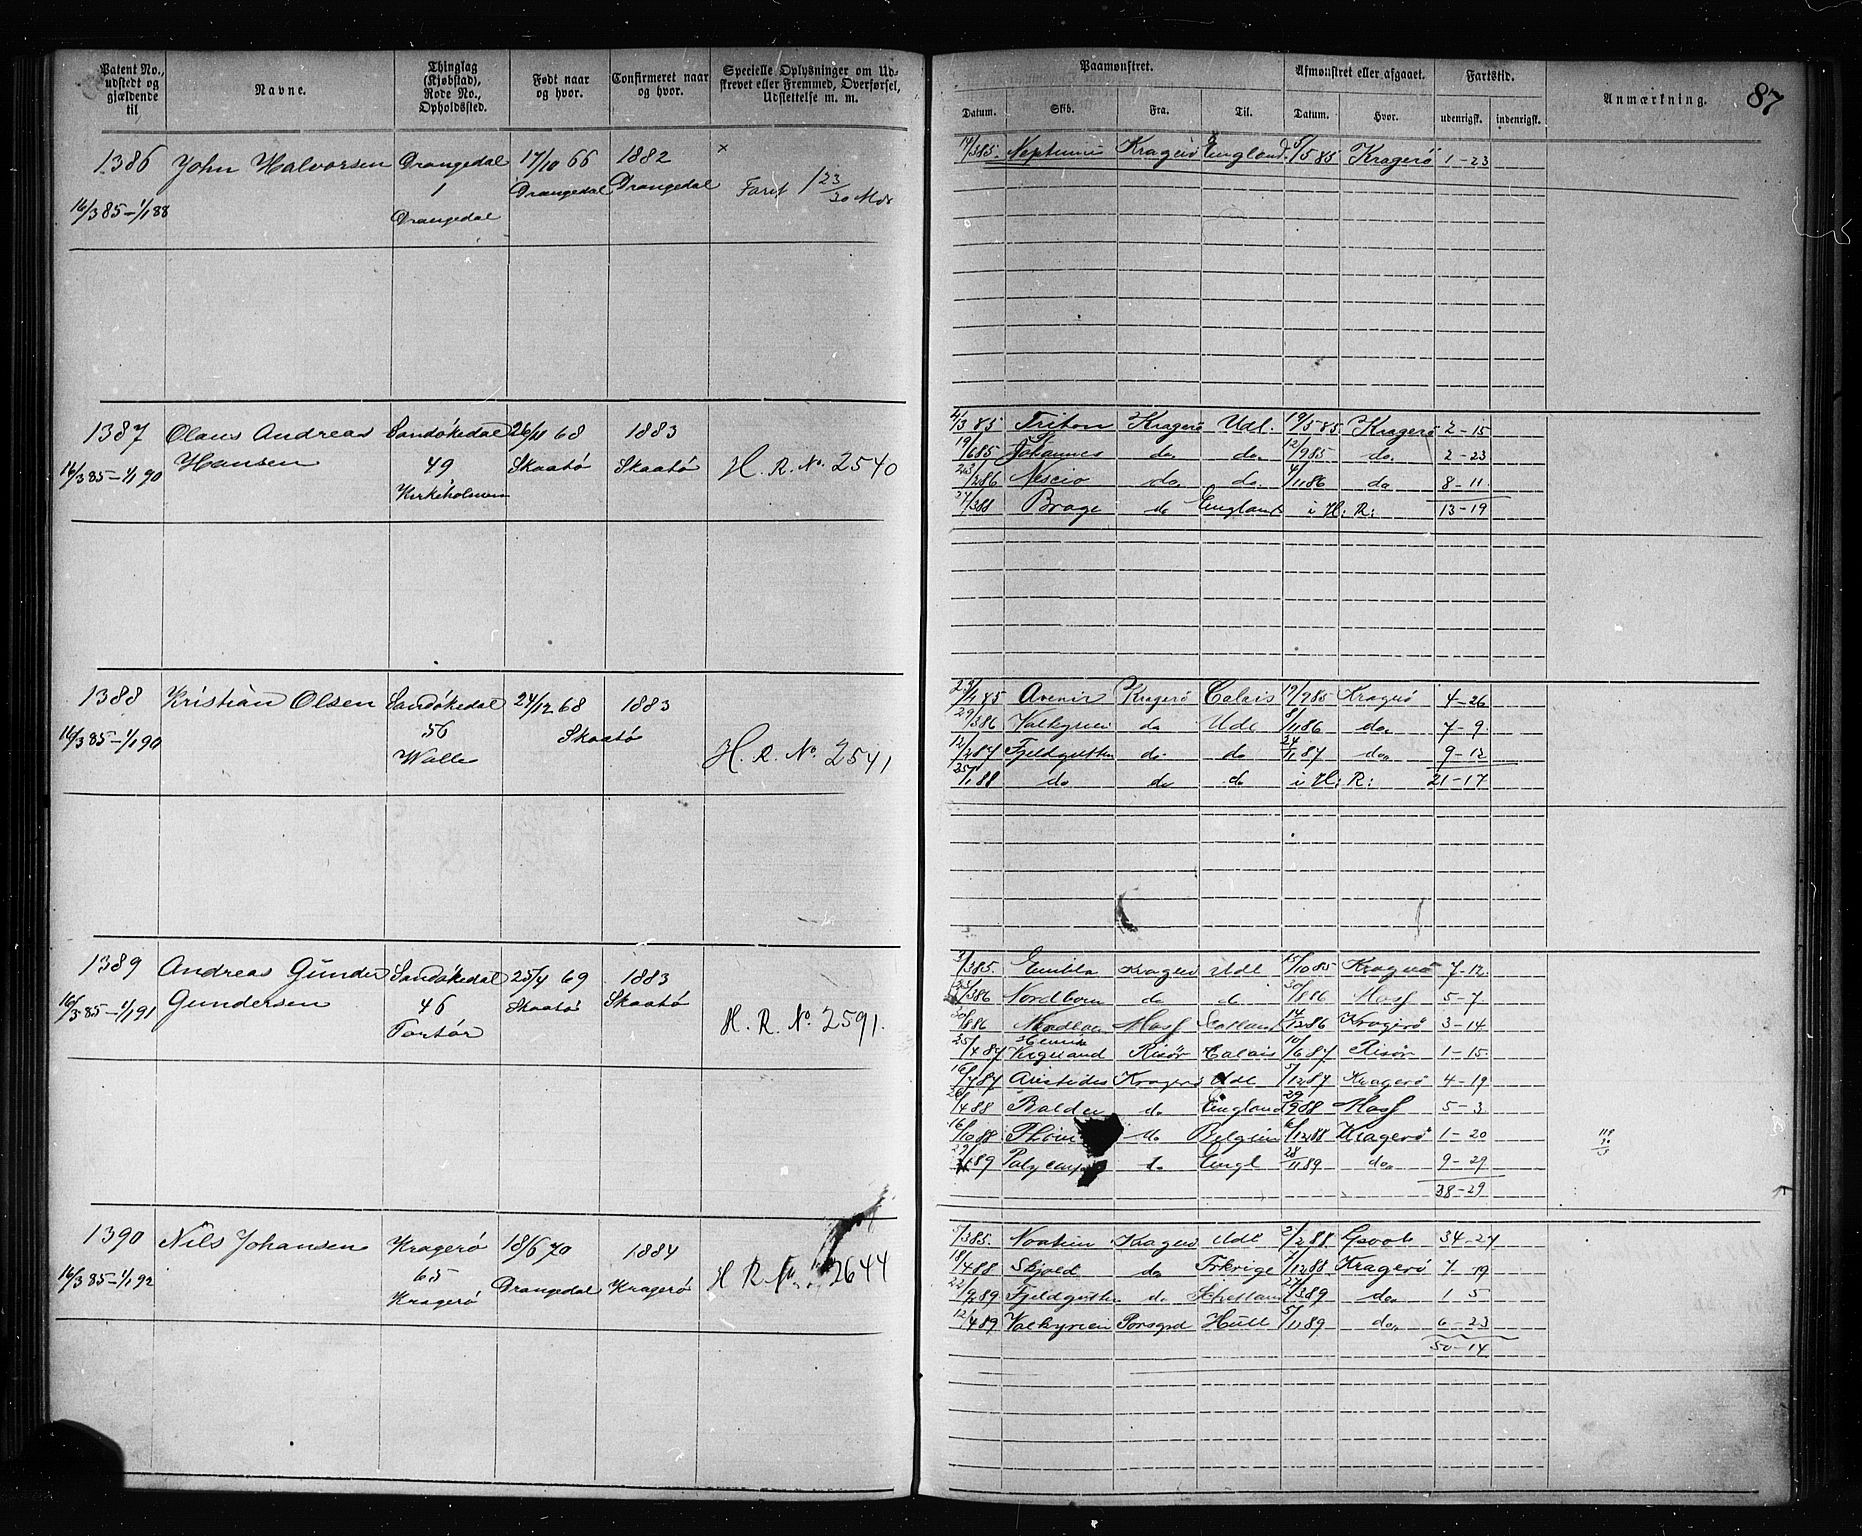 Patent No., udstedt og gjældende til
Navne.
Thinglag (Kjøbstad), Rode No., Opholdssted.
Født naar og hvor.
Confirmeret naar og hvor.
Specielle Oplysninger om Udskrevet eller Fremmed, Overførsel, Udslettelse m. m.
Paamønstret.
Afmønstret eller afgaaet.
Fartstid.
Anmærkning.
87
Datum. Skib. Fra. Til. Datum. Hvor. udenrigsk. indenrigsk.
1386 John Halvorsen Drangedal 17/10 66 1882 ×
16/3 85–1/1 88 1 Drangedal Drangedal Farit 1 23/30 Mdr
Drangedal
Neptunus Kragerö England 5/5 85 Kragerö 1–23
1387 Olaus Andreas Sandökedal 26/11 68 1883
Hansen 49 Skaatö Skaatö H. R. No. 2540
16/3 85–1/1 90 Kirkeholmen
4/3 85 Triton Kragerö Udl. 19/5 85 Kragerö 2–15
19/6 85 Johannes do do. 12/9 85 do. 2–23
23/2 86 Nescio do do. 4/11 86 do 8–11.
27/3 88 Brage do England i H: R: 13–19
1388 Kristian Olsen Sandökedal 24/12 68 1883
16/3 85–1/1 90 56 Skaatö H. R. No. 2541
Walle
23/4 85 Avenir Kragerö Calais 19/9 85 Kragerö 4–26
29/3 86 Valkyrien do Udl 8/11 86 do. 7–9.
12/2 87 Fjeldgutten do. do 24/11 87 do. 9–12
25/1 88 do do do i H: R: 21–17
1389 Andreas Gunder Sandökedal 25/4 69 1883
16/3 85–1/1 91 Gundersen 46 Skaatö Skaatö H. R. No. 2591.
Portör
3/3 85. Embla Kragerö Udl 15/10 85 Kragerö 7–12.
3 86 Nordborn do d. 30/8 86 Moss 5–7
30/8 86 Moss 14/12 86 Kragerö 3–14
Henrik
25/4 87 Vergeland Risör Calais 10/6 87 Risör 1–15
16/7 87 Aristides Kragerö Udl 5/12 87 Kragerö 4–19
4 88 Balder do England 29/9 88 Moss 5–3
16/10 88 do Belgien 6/12 88 Kragerö 1–20
89 Polycarp do Engl 28/11 89 do. 9–29
38–29
1390 Nils Johansen Kragerö 18/6 70 1884
16/3 85–1/1 92 65 Drangedal Kragerö H R No. 2644
Kragerö
5/3 85. Kragerö Udl 2/2 88 34–27
18/4 88 Skjold do 1/12 88 Kragerö 7–19
22/2 89 Fjeldgutten do 27/3 89 do. 1 5
12/4 89 Valkyrien Porsgrd Hull 5/11 89 do. 6–23
50–14